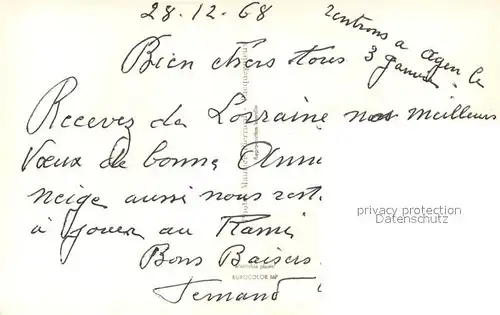 28.12.68
rentrons a Agen le
3 Janvier
Bien chers tous
Recevez de Lorraine nos meilleurs
Voeux de bonne Ann
neige aussi nous rest.
à jouer au Rami
Bons Baisers.
Fernand
privacy protection
Datenschutz
EUROCOLOR MP